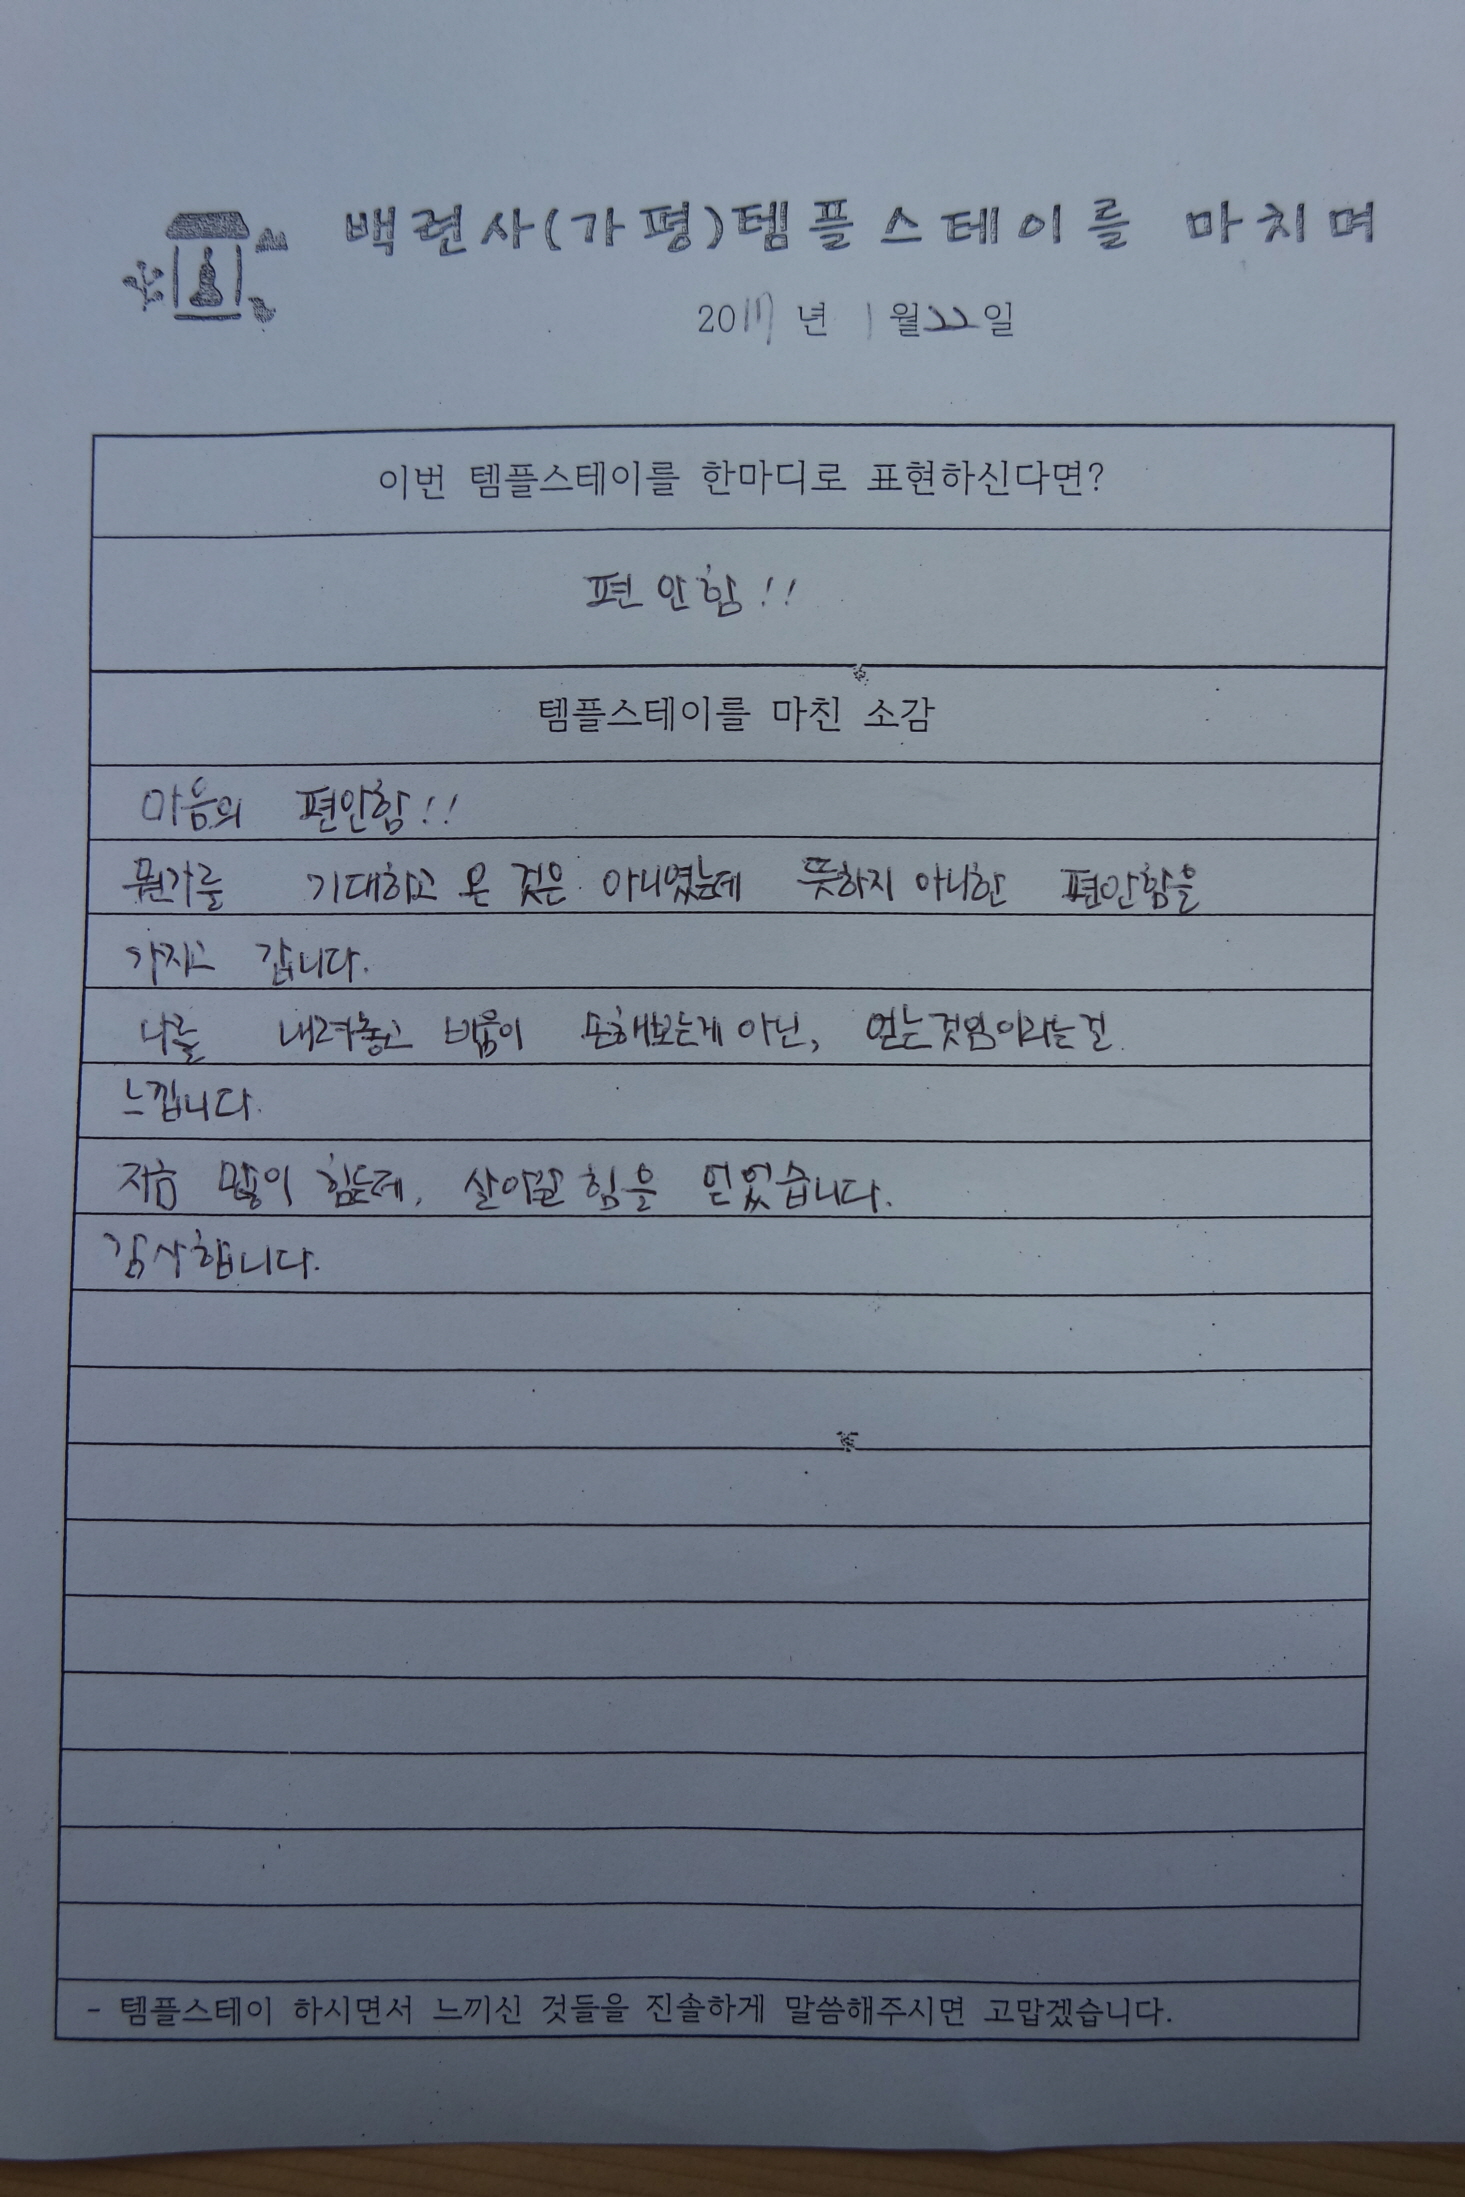 백련사(가평)템플스테이를 마치며
2017년 1월 22일
이번 템플스테이를 한마디로 표현하신다면?
편안함!!
템플스테이를 마친 소감
마음의 편안함!!
뭔가를 기대하고 온 것은 아니였는데 뜻하지 아니한 편안함을
가지고 갑니다.
나를 내려놓고 비움이 손해보는게 아닌, 얻는것임이라는걸
느낍니다.
지금 많이 힘든데, 살아갈 힘을 얻었습니다.
감사합니다.
- 템플스테이 하시면서 느끼신 것들을 진솔하게 말씀해주시면 고맙겠습니다.